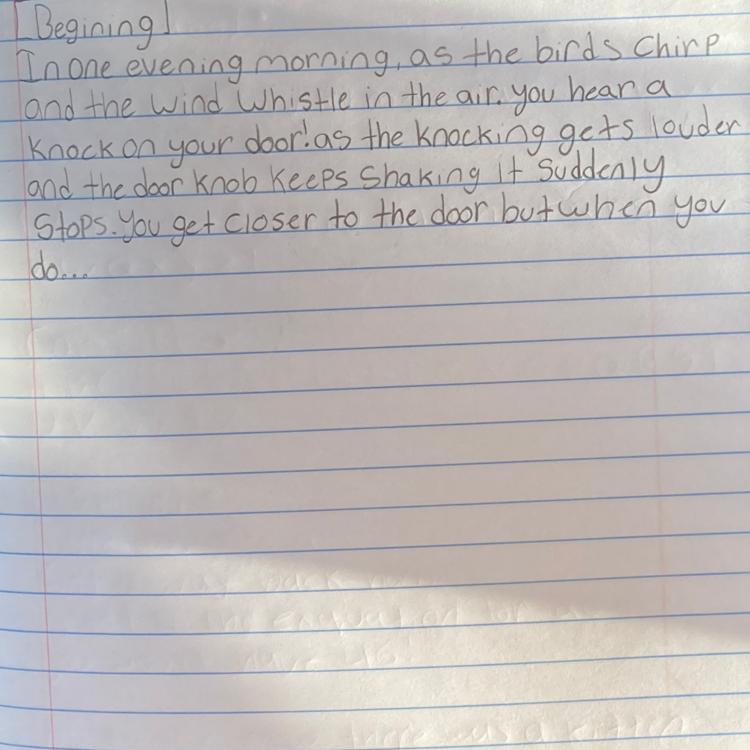 [Begining]
In one evening morning, as the birds chirp
and the wind whistle in the air. you hear a
knock on your door! as the knocking gets louder
and the door knob keeps shaking it suddenly
stops. you get closer to the door but when you
do...